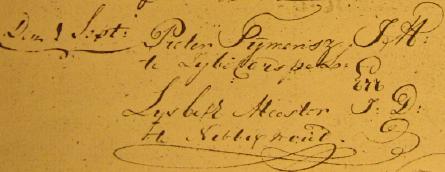 Den 1 Sept: Pieter Pijmensz, J: M:
te
en
Lysbeth Meester J: D:
te Nibbixwout.